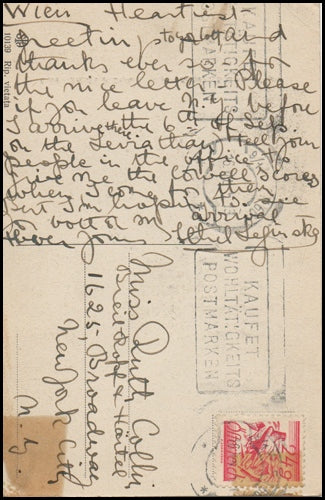 Wien Heartiest
greetings to you both and
thanks ever so for
the nice letter. Please
if you leave N.Y. before
I arrive the 6 of Sep.
on the Leviathan tell your
people in the office to
give me the scores
when I come for them
but I'm hoping to see
you both on my arrival
Ever yours Ethel Leginska
10139 Rip. vietata
KAUFET
WOHLTÄTIGKEITS
POSTMARKEN
KAUFET
WOHLTÄTIGKEITS
POSTMARKEN
Miss Ruth
Breitkopf & Härtel
1625, Broadway
New York City
N.Y.